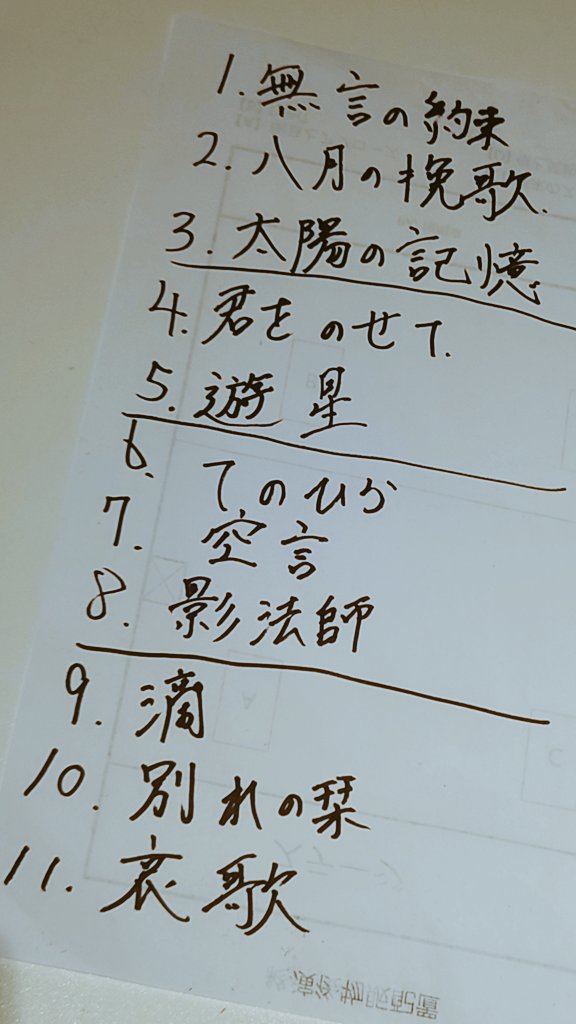 1. 無言の約束
2. 八月の挽歌.
3. 太陽の記憶
4. 君をのせて.
5. 遊星
6. てのひら
7. 空言
8. 影法師
9. 滴
10. 別れの栞
11. 哀歌